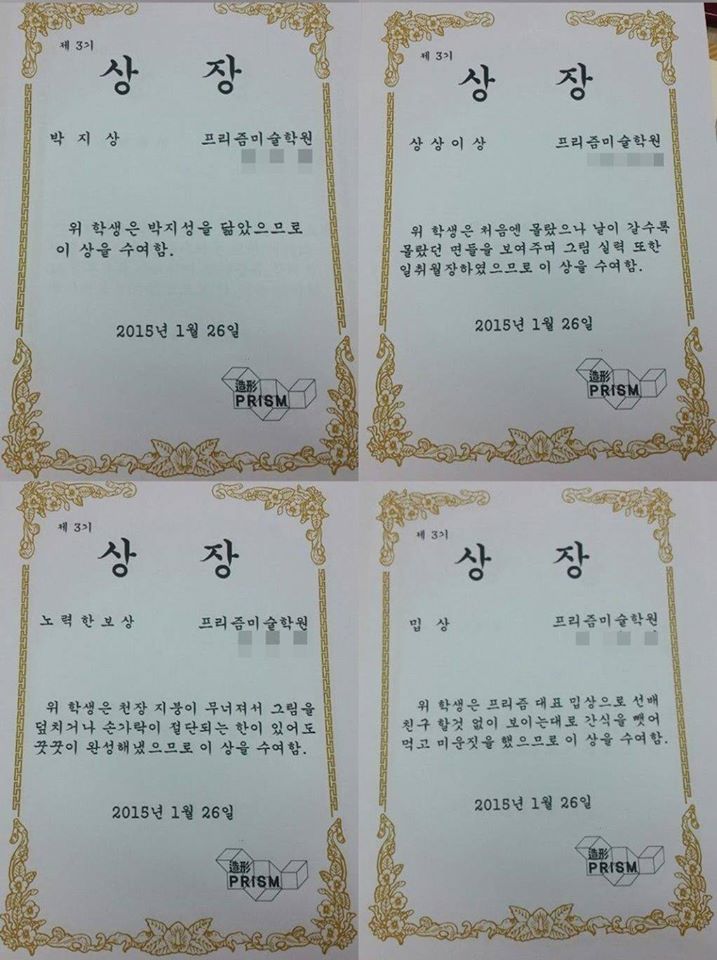 제 3기
상 장
박 지 상 프리즘미술학원
위 학생은 박지성을 닮았으므로
이 상을 수여함.
2015년 1월 26일
造形
PRISM
제 3기
상 장
상상이상 프리즘미술학원
위 학생은 처음엔 몰랐으나 날이 갈수록
몰랐던 면들을 보여주며 그림 실력 또한
일취월장하였으므로 이 상을 수여함.
2015년 1월 26일
造形
PRISM
제 3기
상 장
노력한보상 프리즘미술학원
위 학생은 천장 지붕이 무너져서 그림을
덮치거나 손가락이 절단되는 한이 있어도
꿋꿋이 완성해냈으므로 이 상을 수여함.
2015년 1월 26일
造形
PRISM
제 3기
상 장
밉 상 프리즘미술학원
위 학생은 프리즘 대표 밉상으로 선배
친구 할것 없이 보이는대로 간식을 뺏어
먹고 미운짓을 했으므로 이 상을 수여함.
2015년 1월 26일
造形
PRISM